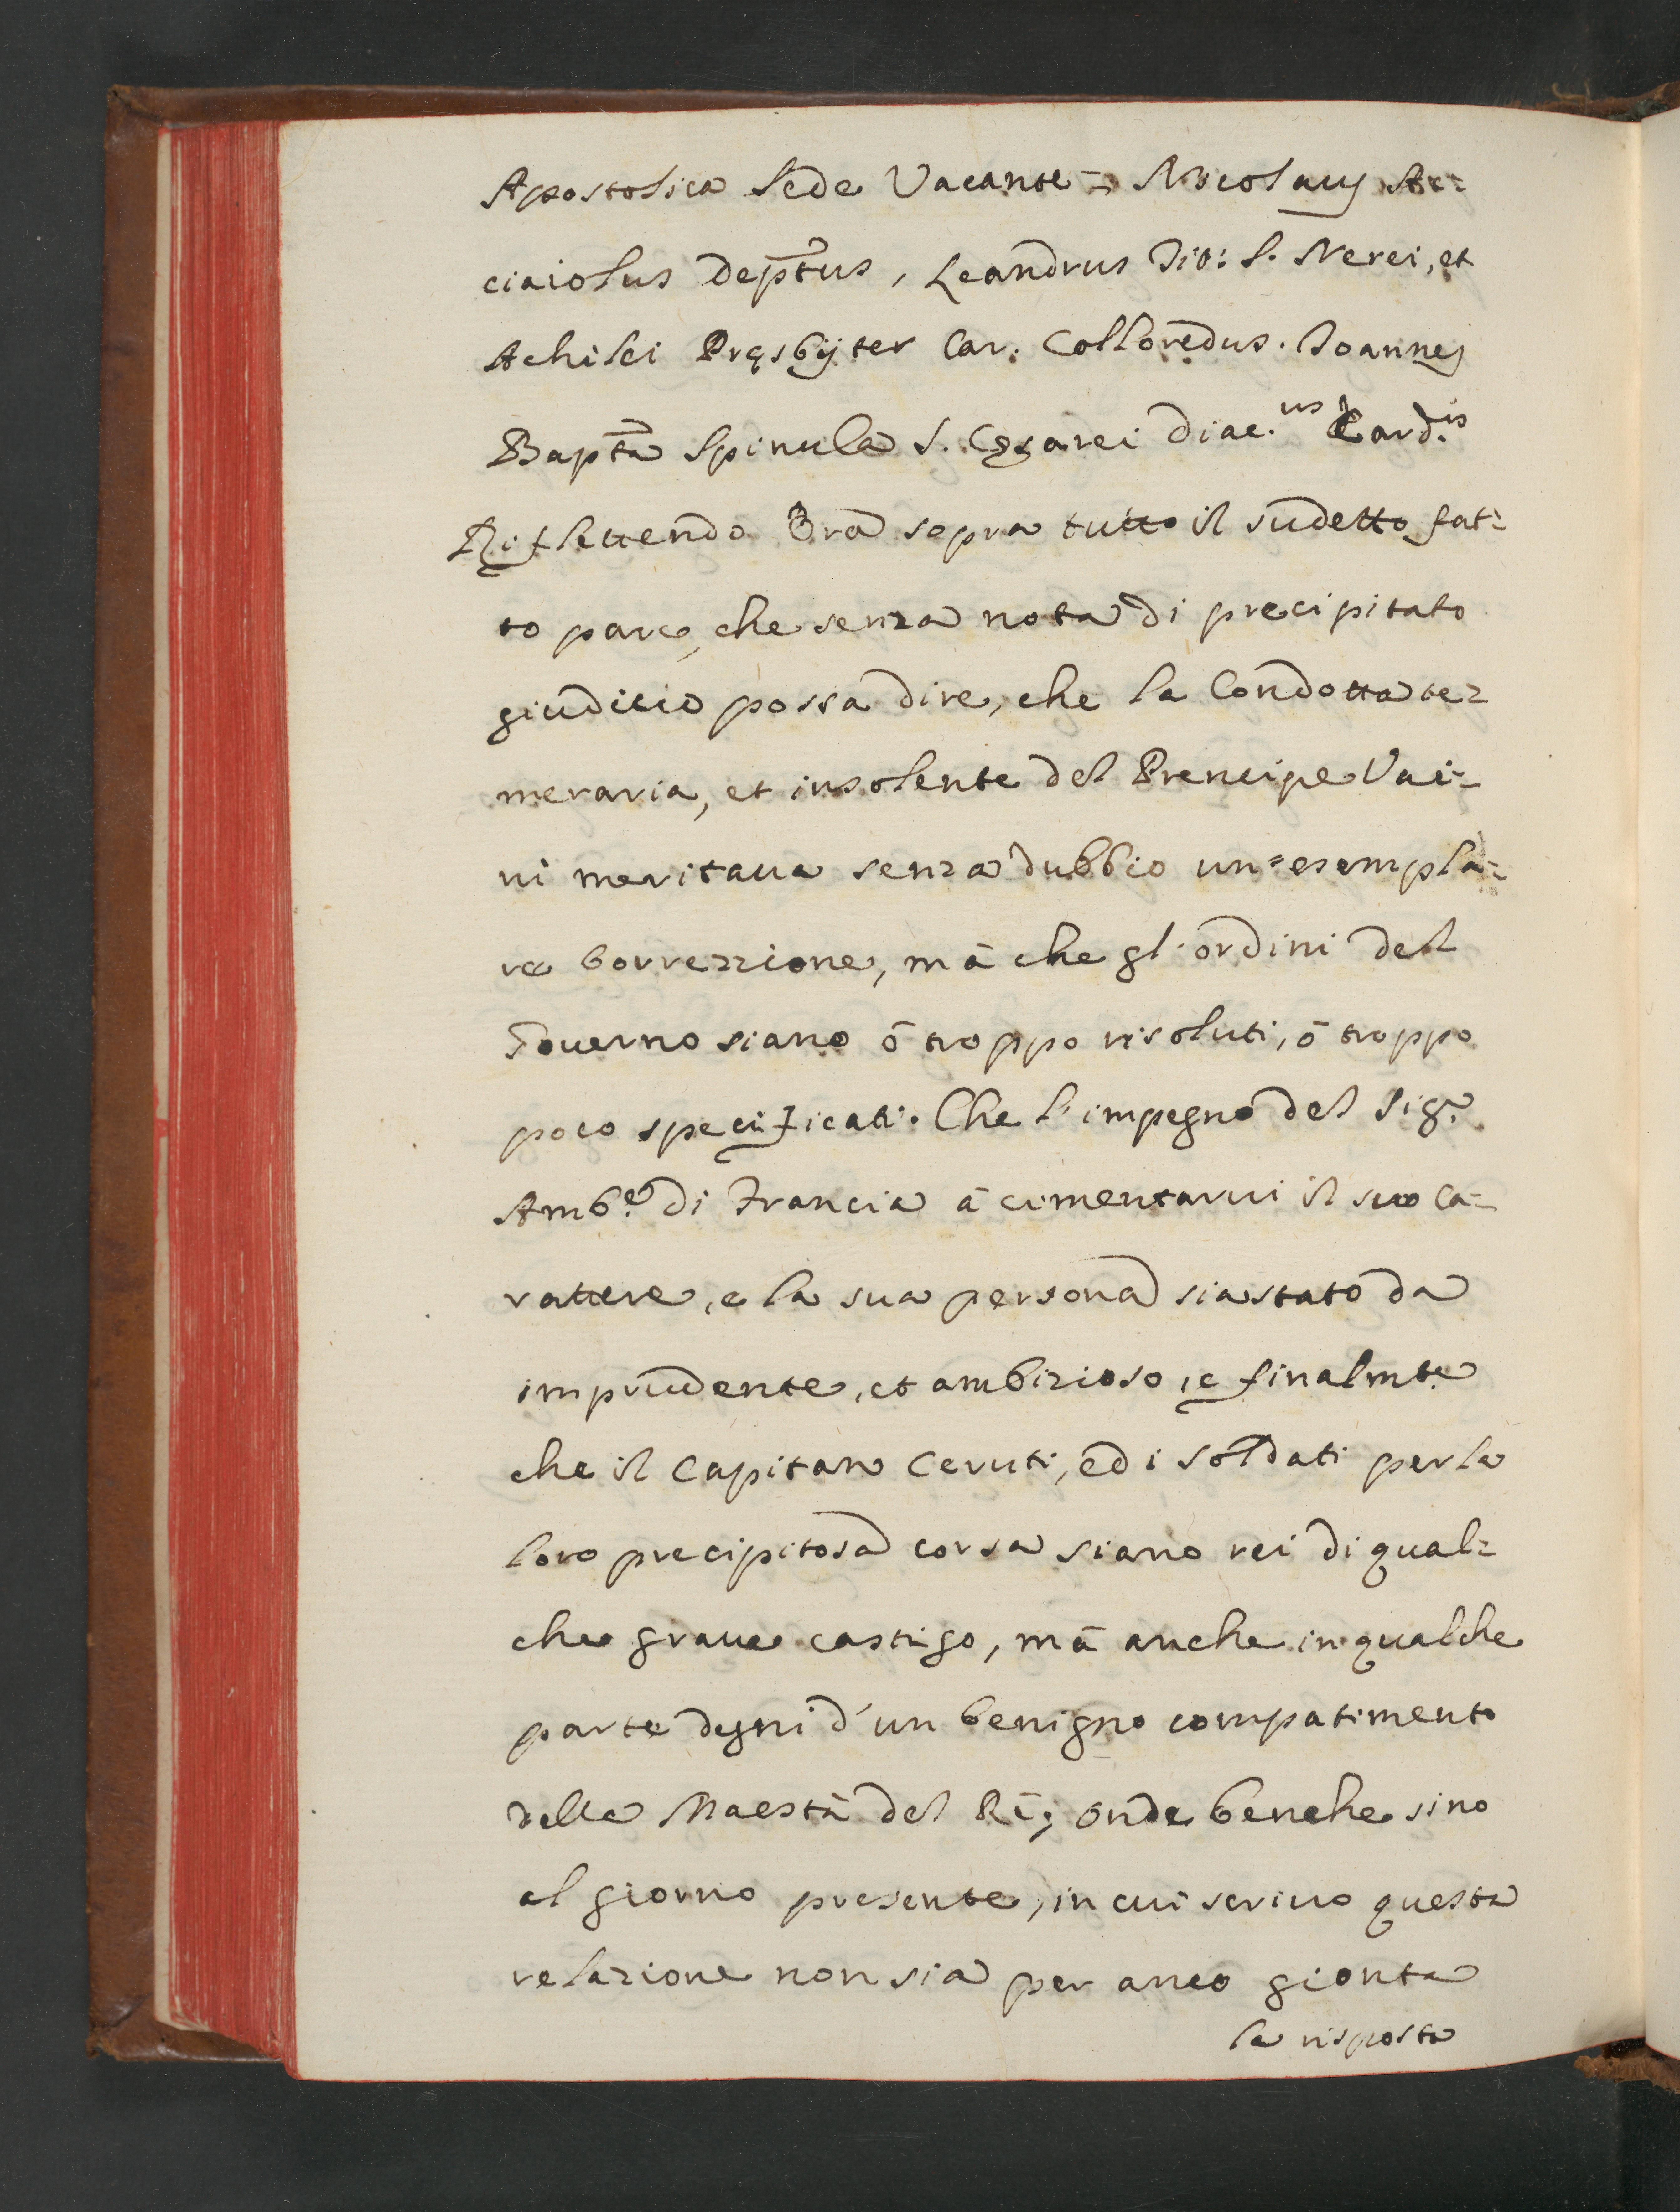 Apostolica Sede Vacante = Nicolaus Ac=
ciaiolus Deptus, Leandrus Tit: S. Nerei, et
Achilei Pręsbyter Car. Colloredus. Joannes
Bapta Spinula S. Cęsarei Diac.us Card.is
Riflettendo Ora sopra tutto il sudetto fat=
to pare, che senza nota di precipitato
giudicio possa dire, che la Condotta te=
meraria, et insolente del Prencipe Vai=
ni meritaua senza dubbio un'esempla=
re Correzzione, mà che gl'ordini del
Gouerno siano ò troppo risoluti, ò troppo
poco specificati. Che l'impegno del Sig.r
Amb.e di Francia à cimentarui il suo Ca=
rattere, e la sua persona sia stato da
imprudente, et ambizioso, e finalmte
che il Capitan Ceruti, ed i Soldati per la
loro precipitosa corsa siano rei di qual=
che graue castigo, mà anche in qualche
parte degni d'un benigno compatimento
della Maestà del Rè; onde benche sino
al giorno presente, in cui scriuo questa
relazione non sia per anco gionta
la risposta